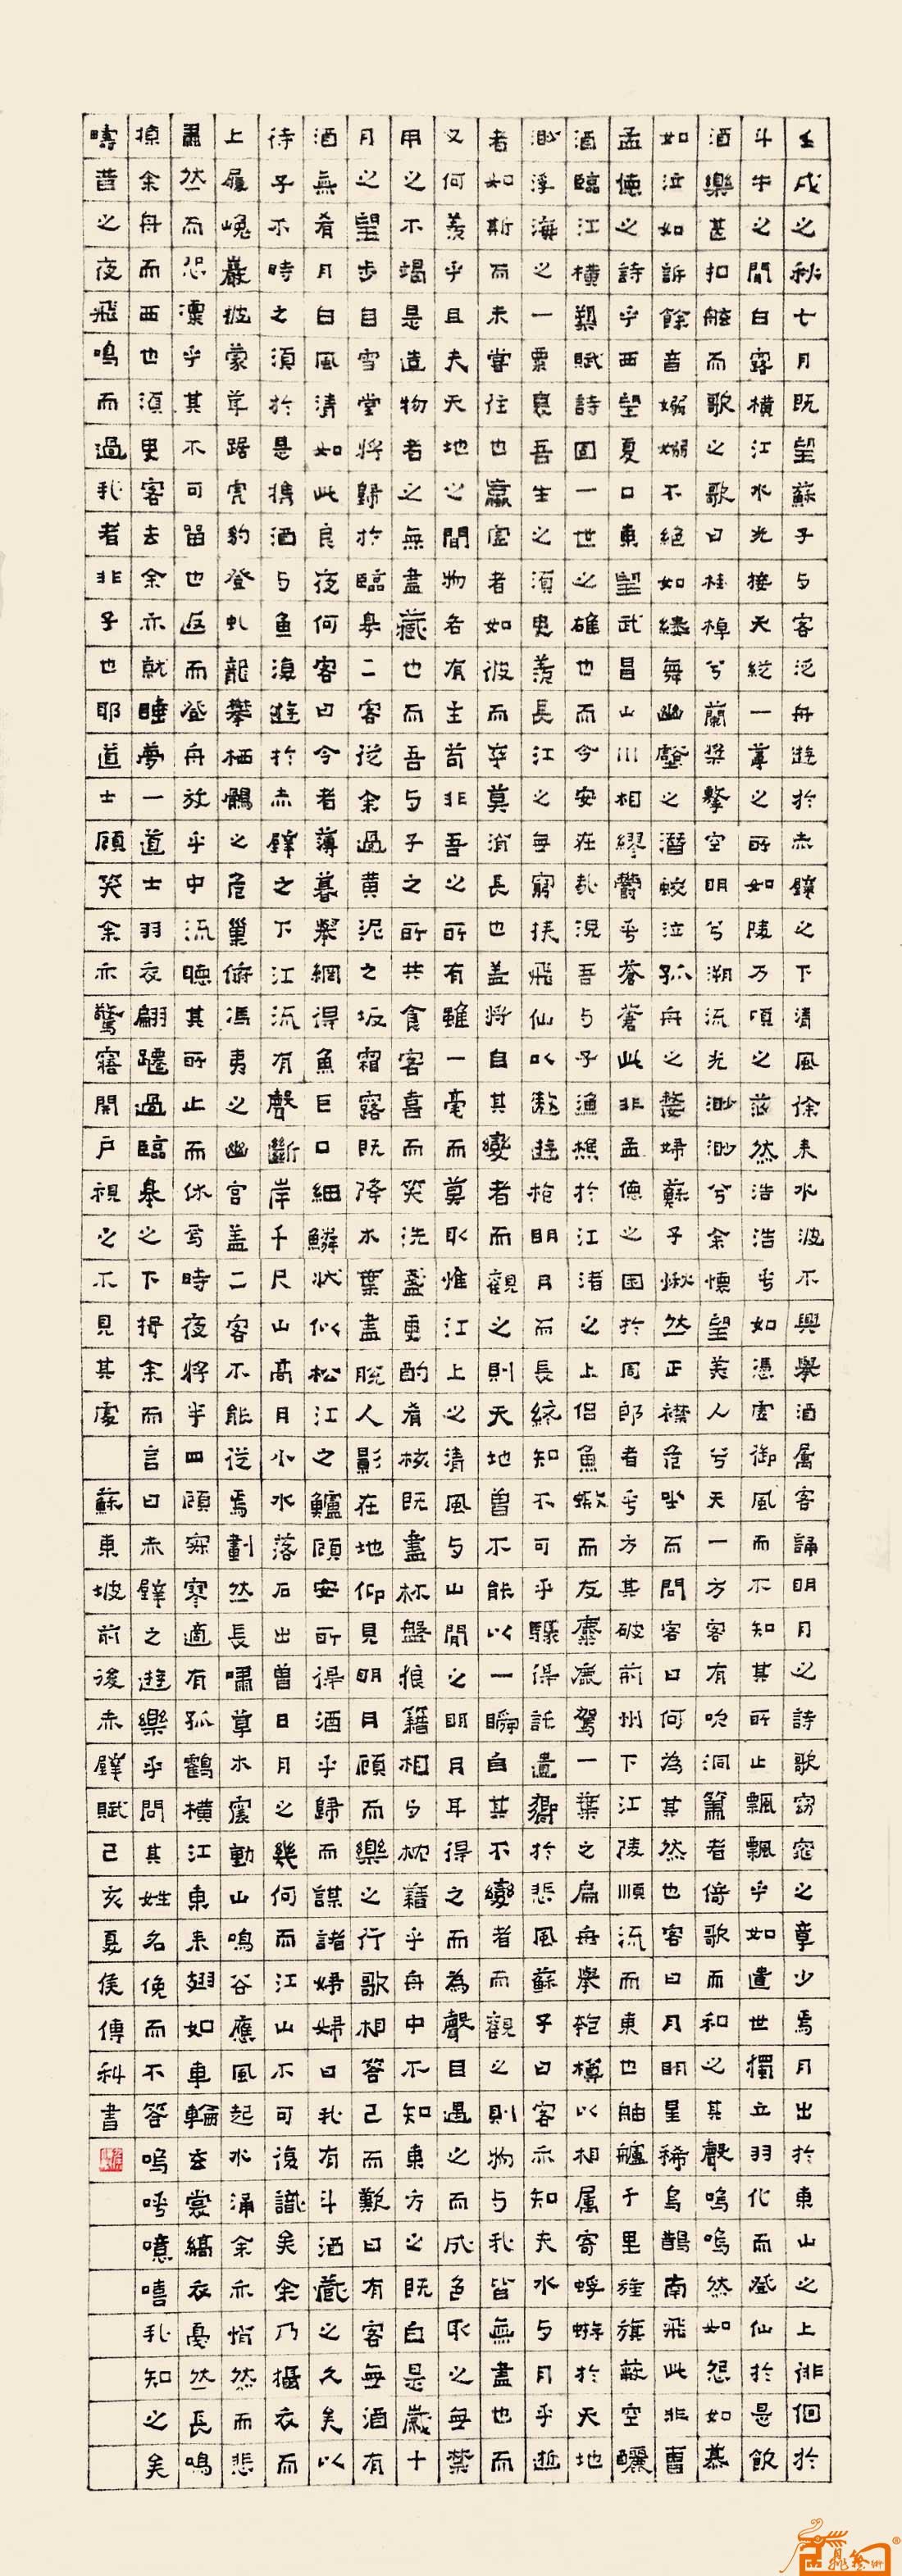 壬戌之秋七月既望蘇子与客泛舟遊於赤壁之下清風徐来水波不興舉酒属客誦明月之詩歌窈窕之章少焉月出於東山之上徘徊於
斗牛之間白露横江水光接天縱一葦之所如陵万頃之茫然浩浩乎如憑虚御風而不知其所止飄飄乎如遺世獨立羽化而登仙於是飲
酒樂甚扣舷而歌之歌曰桂棹兮蘭槳擊空明兮溯流光渺渺兮余懷望美人兮天一方客有吹洞簫者倚歌而和之其聲嗚嗚然如怨如慕
如泣如訴餘音嫋嫋不絕如縷舞幽壑之潜蛟泣孤舟之嫠婦蘇子愀然正襟危坐而問客曰何為其然也客曰月明星稀烏鵲南飛此非曹
孟德之詩乎西望夏口東望武昌山川相繆鬱乎蒼蒼此非孟德之困於周郎者乎方其破荆州下江陵順流而東也舳艫千里旌旗蔽空釃
酒臨江横槊賦詩固一世之雄也而今安在哉況吾与子漁樵於江渚之上侣魚蝦而友麋鹿駕一葉之扁舟舉匏樽以相属寄蜉蝣於天地
渺浮海之一粟哀吾生之須臾羡長江之無窮挾飛仙以遨遊抱明月而長終知不可乎驟得託遺響於悲風蘇子曰客亦知夫水与月乎逝
者如斯而未嘗往也盈虚者如彼而卒莫消長也盖將自其變者而觀之則天地曾不能以一瞬自其不變者而觀之則物与我皆無盡也而
又何羡乎且夫天地之間物各有主苟非吾之所有雖一毫而莫取惟江上之清風与山間之明月耳得之而為聲目遇之而成色取之無禁
用之不竭是造物者之無盡藏也而吾与子之所共食客喜而笑洗盞更酌肴核既盡杯盤狼籍相与枕藉乎舟中不知東方之既白是歲十
月之望步自雪堂將歸於臨皋二客從余過黄泥之坂霜露既降木葉盡脱人影在地仰見明月顧而樂之行歌相答已而歎曰有客無酒有
酒無肴月白風清如此良夜何客曰今者薄暮舉網得魚巨口細鱗狀似松江之鱸顧安所得酒乎歸而謀諸婦婦曰我有斗酒藏之久矣以
待子不時之須於是携酒与魚復遊於赤壁之下江流有聲斷岸千尺山高月小水落石出曾日月之幾何而江山不可復識矣余乃攝衣而
上履巉巖披蒙茸踞虎豹登虬龍攀栖鶻之危巢俯馮夷之幽宫盖二客不能從焉劃然長嘯草木震動山鳴谷應風起水涌余亦悄然而悲
肅然而恐凛乎其不可留也返而登舟放乎中流聽其所止而休焉時夜將半四顧寂寥適有孤鶴横江東来翅如車輪玄裳縞衣戛然長鳴
掠余舟而西也須臾客去余亦就睡夢一道士羽衣翩躚過臨皋之下揖余而言曰赤壁之遊樂乎問其姓名俛而不答嗚呼噫嘻我知之矣
疇昔之夜飛鳴而過我者非子也耶道士顧笑余亦驚寤開户視之不見其處 蘇東坡前後赤壁賦己亥夏侯傳科書